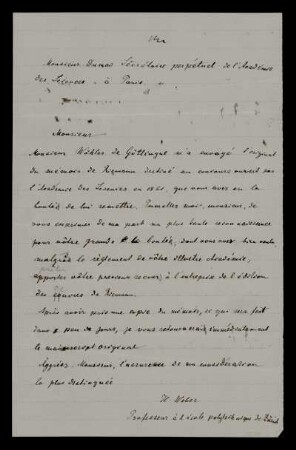 Monsieur Dumas Sécrétaire perpétuel de l'Académie
des Sciences à Paris.
Monsieur
Monsieur Wöhler de Göttingue m'a envoyé l'original
du mémoire de Riemann destiné au concours ouvert par
l'Académie des Sciences en 1860, que vous avez eu la
bonté de lui remettre. Permettez moi, monsieur, de
vous exprimer de ma part ma plus haute reconnaissance
pour vôtre grande bonté, dont vous avez
malgré le règlement de vôtre illustre Académie,
vôtre précieux à l'entreprise de l'édition
des œuvres de Riemann.
Après avoir pris une copie du mémoire, ce qui sera fait
dans peu de jours, je vous retournerai immédiatement
le manuscript original.
Agréez, Monsieur, l'assurance de ma considération
la plus distinguée
H. Weber
Professeur à l'école polytechnique de Zürich